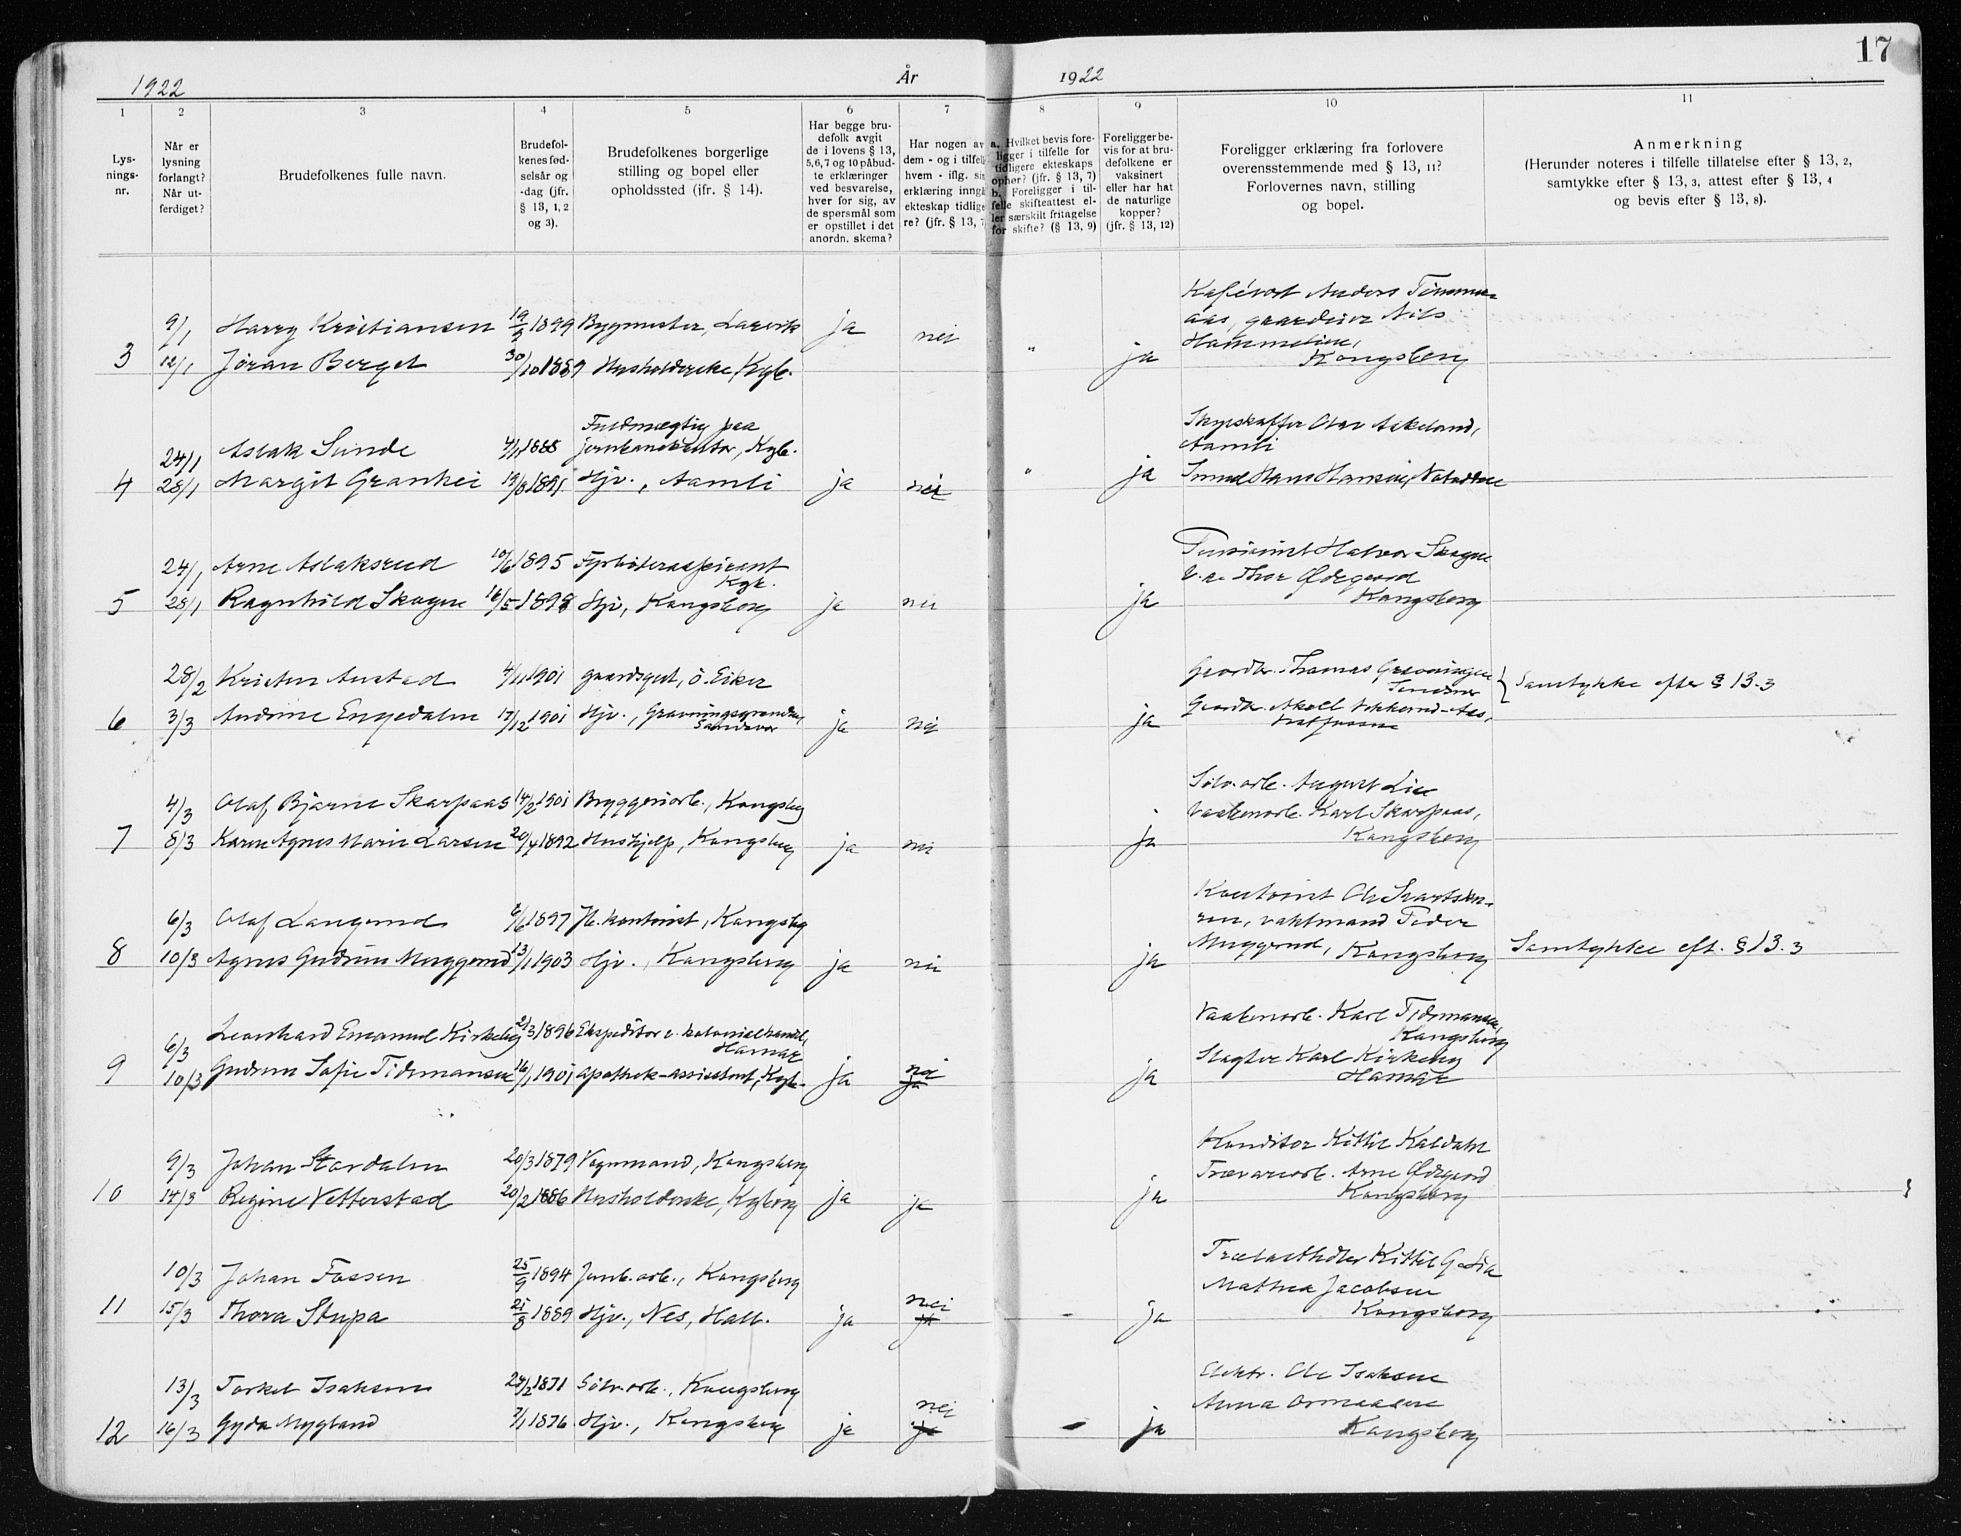 17
1922 År 1922
1 2 3 4 5 6 7 8 9 10 11
Lysnings-
nr.
Når er
lysning
forlangt?
Når ut-
ferdiget?
Brudefolkenes fulle navn.
Brudefol-
kenes fød-
selsår og
-dag (jfr.
§ 13, 1, 2
og 3).
Brudefolkenes borgerlige
stilling og bopel eller
opholdssted (jfr. § 14).
Har begge bru-
defolk avgit
de i lovens § 13,
5,6,7 og 10 påbud-
te erklæringer
ved besvarelse,
hver for sig, av
de spørsmål som
er opstillet i det
anordn. skema?
Har nogen av
dem - og i tilfelle
hvem - iflg. sin
erklæring inngå
ekteskap tidlige
re? (jfr. § 13, 7
a. Hvilket bevis fore-
ligger i tilfelle for
tidligere ekteskaps
ophør? (jfr. § 13, 7)
b. Foreligger i til-
felle skifteattest el-
ler særskilt fritagelse
for skifte? (§ 13, 9)
Foreligger be-
vis for at bru-
defolkene er
vaksinert
eller har hat
de naturlige
kopper?
(jfr. § 13, 12)
Foreligger erklæring fra forlovere
overensstemmende med § 13, 11?
Forlovernes navn, stilling
og bopel.
Anmerkning
(Herunder noteres i tilfelle tillatelse efter § 13, 2,
samtykke efter § 13, 3, attest efter § 13, 4
og bevis efter § 13, 8).
Kafévert Anders
9/1 Harry Kristiansen 19/3 1899 Bygmester, Larvik ja nei aas, gaardeier Nils
3 12/1 Jøran Berget 30/10 1889 Husholderske, Kgb. " ja Kongsberg
Fuldmægtig paa
24/1 Aslak Sunde 4/11 1888 jernbanekontor, Kgb. Skysskaffer Olav Askeland,
Aamli
4 28/1 Margit Granhei 19/8 1891 Hjv., Aamli ja nei " ja Smed Hans Hansen, Notodden
24/1 Arne Aslaksrud 10/6 1895 Fyrbøteraspirant Halvor Skogen
Kgb. Thor Ødegaard
5 28/1 Ragnhild Skogen 16/5 1898 Hjv, Kongsberg ja nei ja Kongsberg
28/2 Kristen Austad 4/11 1901 gaardsgut, ø. Eiker Gaardbr. Thomas Gravningen
Sandsvær } Samtykke efter § 13.3
6 3/3 Andrine Engedalen 17/12 1901 Hjv., Gravningsgrenden ja nei ja
Sandsvær
4/3 Olaf Bjarne Skarpaas 14/2 1901 Bryggeriarb., Kongsberg Sølv.arb. August Lie
Vaabenarb. Karl Skarpaas,
7 8/3 Karen Agnes Marie Larsen 20/4 1892 Hushjelp, Kongsberg ja nei ja Kongsberg
6/3 Olaf Langerud 6/6 1897 Jb. kontorist, Kongsberg Kontorist Ole
vaktmand Peder
8 10/3 Agnes Gudrun Muggerud 13/1 1903 Hjv., Kongsberg ja nei ja Muggerud, Kongsberg Samtykke eft. § 13.3
6/3 Leonhard Emanuel Kirkeby 2/3 1896 Ekspeditør v. kolonialhandel, Vaabenarb. Karl Tidemansen,
Hamar Kongsberg
9 10/3 Gudrun Sofie Tidemansen 16/1 1901 Apothek-assistent, Kgb. ja nei ja Slagter Karl Kirkeby
ja Hamar
9/3 Johan Stordalen 20/3 1879 Vognmand, Kongsberg Konditor Kittil Kaldahl
Trævarearb. Arne Ødegaard
10 14/3 Regine Vetterstad 20/2 1886 Husholderske, Kgberg ja ja ja Kongsberg
10/3 Johan Fossen 25/9 1894 Jernb.arb., Kongsberg Trælasthdler Kittil G. Lia
Mathea Jacobsen
11 15/3 Thora Stupa 21/8 1889 Hjv., Nes, Hall. ja nei - ja Kongsberg
ja
13/3 Torkel Isaksen 24/2 1871 Sølv.arb., Kongsberg Elektr. Ole Isaksen
Anna Ormaasen
12 16/3 Gyda Mygland 7/1 1876 Hjv., Kongsberg ja nei - ja Kongsberg
ja